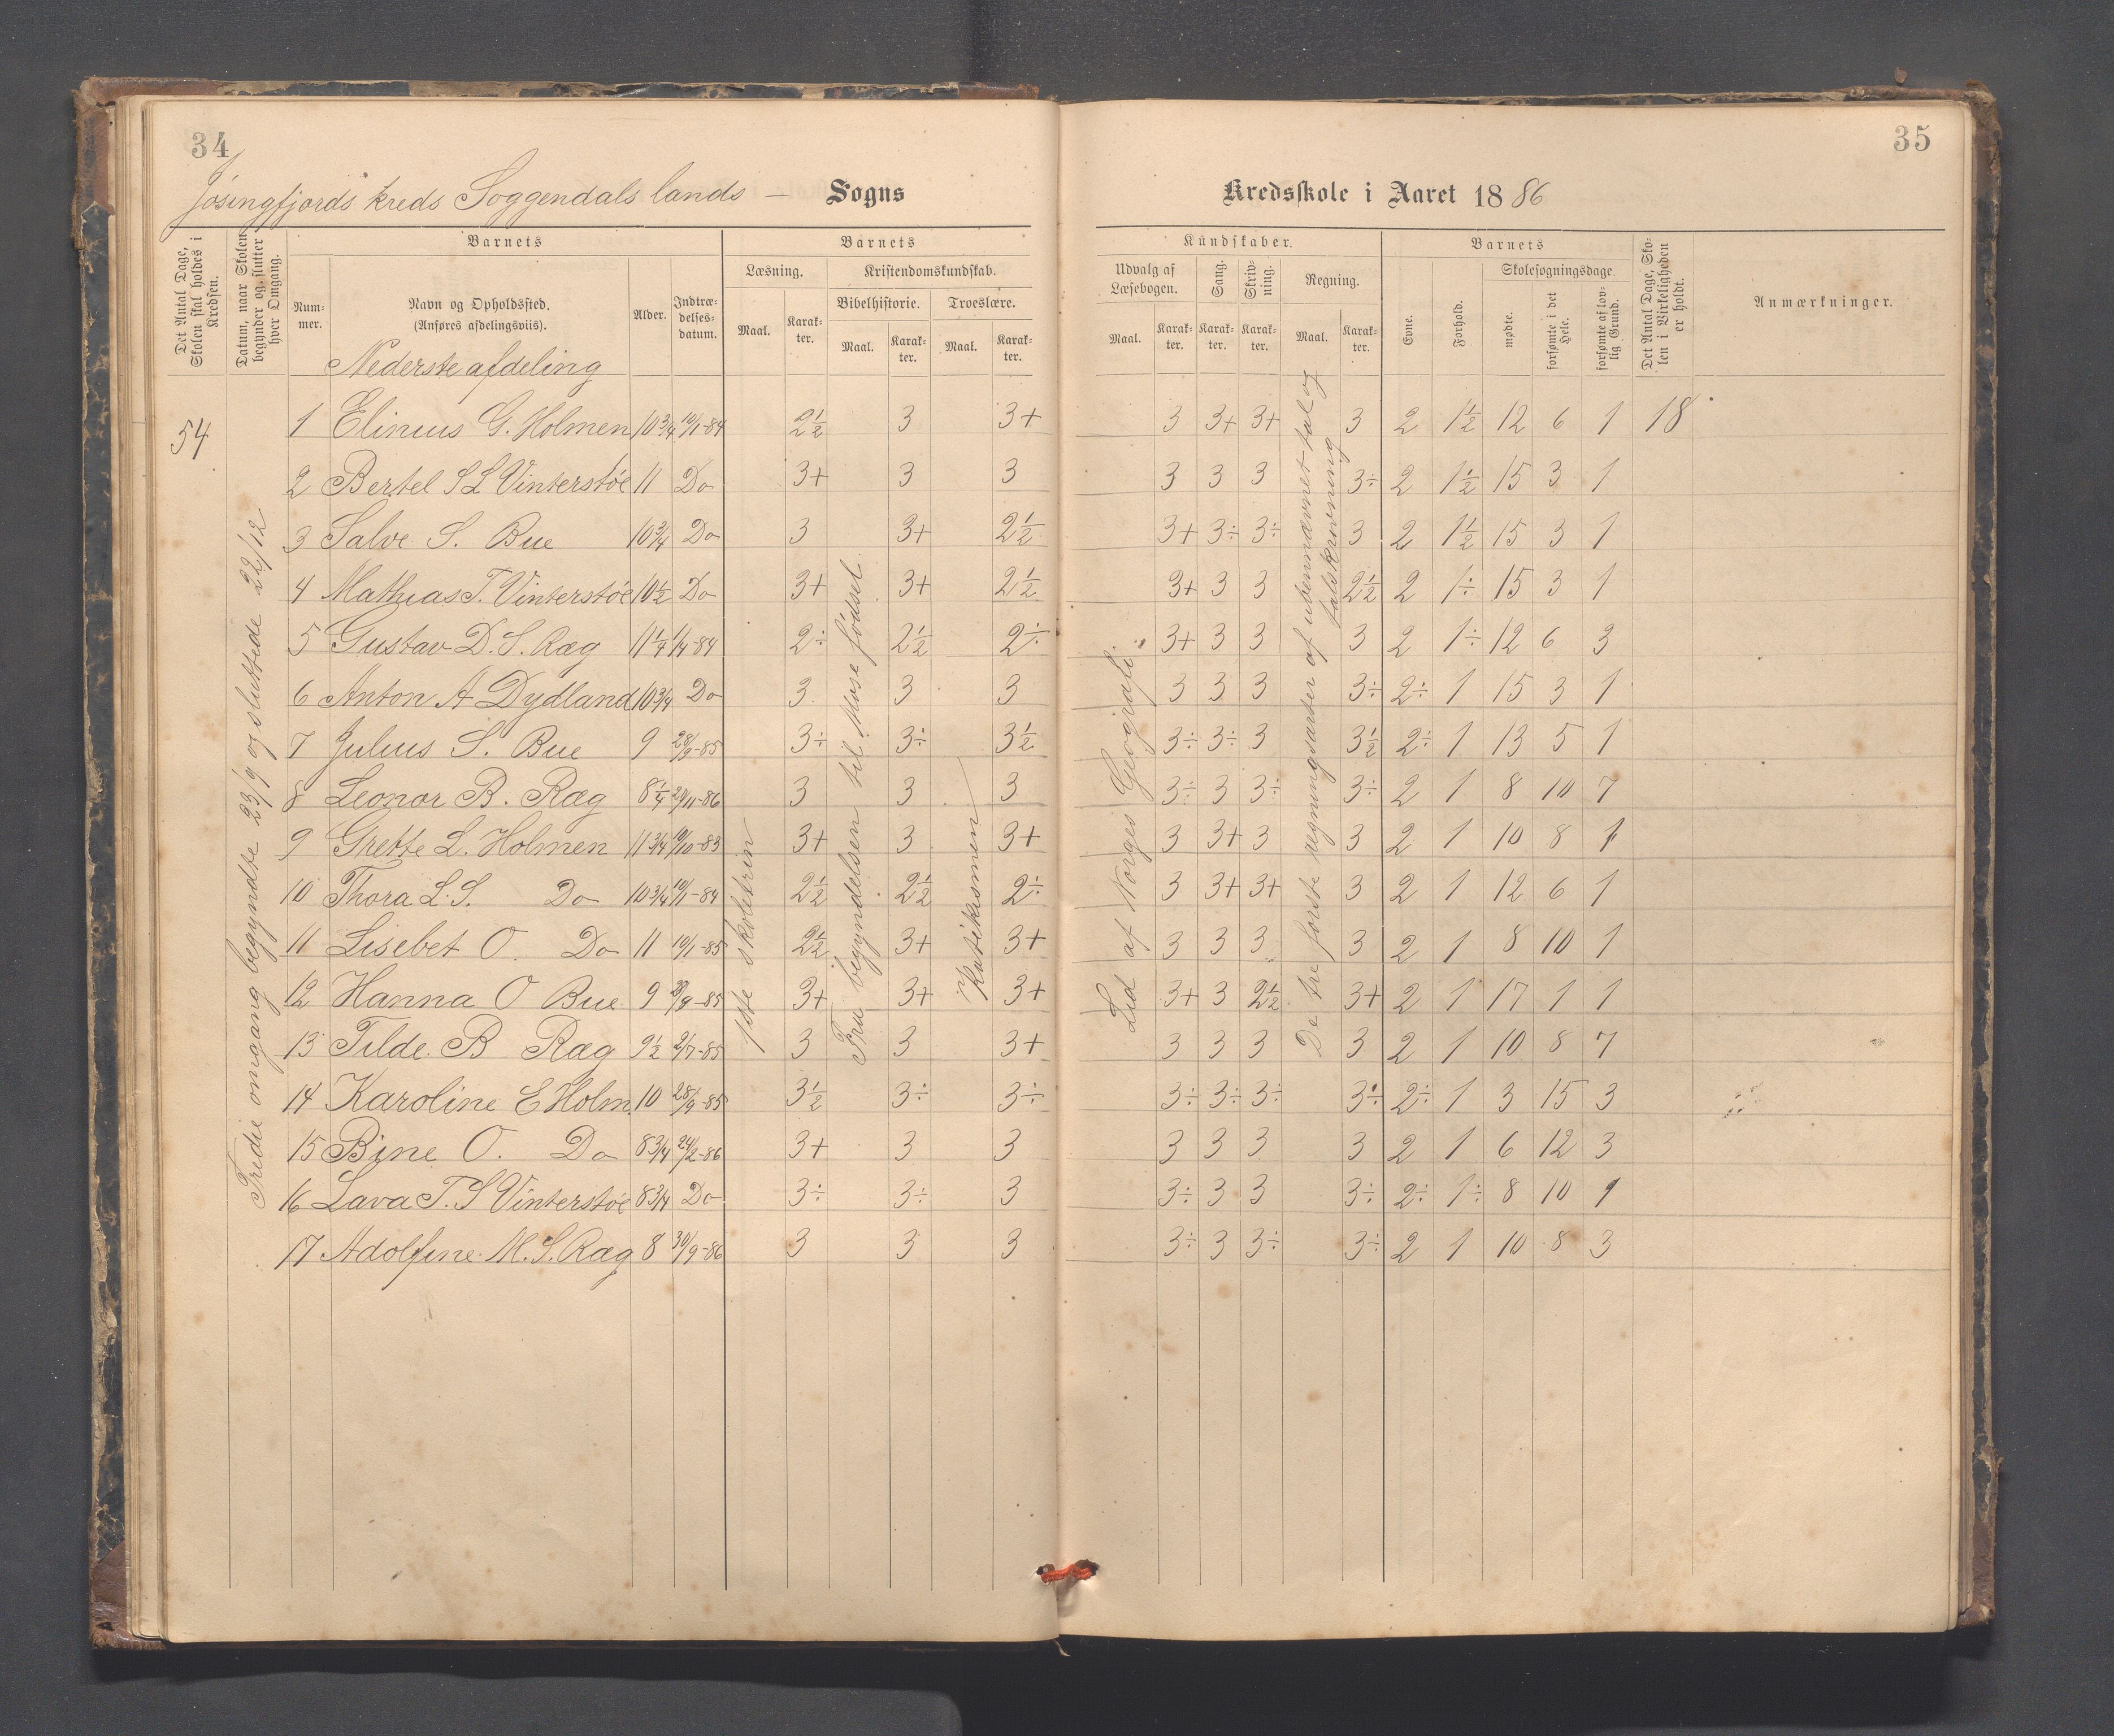 34
Jøsingfjords kreds Soggendals lands — Sogns
Det Antal Dage, Skolen skal holdes i Kredsen.
Datum, naar Skolen begynder og slutter hver Omgang.
Barnets
Nummer.
Navn og Opholdssted. (Anføres afdelingsviis).
Alder.
Indtrædelsesdatum.
Barnets
Læsning.
Kristendomskundskab.
Bibelhistorie.
Troeslære.
Maal. Karakter. Maal. Karakter. Maal. Karakter.
Nederste afdeling
54
Tredie omgang begyndte 23/9 og sluttede 22/12
1 Elinius G. Holmen 10 3/4 10/1-84 2½ 3 3+
2 Bertel S L Vinterstøe 11 Do 3+ 3 3
3 Salve S. Bue 10 3/4 Do 3 3+ 2½
4 Mathias T. Vinterstøe 10½ Do 3+ 3+ 2½
5 Gustav D. S. Ræg 11¼ 1/4-84 2÷ 2½ 2÷
6 Anton A Dydland 10 3/4 Do 3 3 3
7 Julius S. Bue 9 28/9-85 3÷ 3÷ 3½
8 Leonor B. Ræg 8¼ 29/11-86 3 3 3
9 Grette L. Holmen 11 3/4 19/10-83 3+ 3 3+
10 Thora L. S. Do 10 3/4 10/1-84 2½ 2½ 2÷
11 Lisebet O. Do 11 10/1-85 2½ 3+ 3+
12 Hanna O Bue 9 28/9-85 3+ 3+ 3+
13 Tilde B Ræg 9½ 2/7-85 3 3 3+
14 Karoline E Holm. 10 28/9-85 3½ 3÷ 3÷
15 Bine O. Do 8 3/4 24/2-86 3+ 3 3
16 Lava T. S Vinterstøe 8 3/4 Do 3÷ 3÷ 3
17 Adolfine M. S. Ræg 8 30/9-86 3 3 3
1ste skoletrin
Fra begyndelsen til Mose fødsel
Katekismen
35
Kredsskole i Aaret 1886
Kundskaber.
Udvalg af Læsebogen.
Sang.
Skrivning.
Regning.
Maal. Karakter. Karakter. Karakter. Maal. Karakter.
Barnets
Evne.
Forhold.
Skolesøgningsdage.
mødte.
forsømte i det Hele.
forsømte af lovlig Grund.
Det Antal Dage, Skolen i Virkeligheden er holdt.
Anmærkninger.
Lid af Norges Geografi.
De fire første regningsarter af ubenævnet tal og
talskrivning
3 3+ 3+ 3 2 1½ 12 6 1 18
3 3 3 3÷ 2 1½ 15 3 1
3+ 3÷ 3÷ 3 2 1½ 15 3 1
3+ 3 3 2½ 2 1÷ 15 3 1
3+ 3 3 3 2 1÷ 12 6 3
3 3 3 3÷ 2÷ 1 15 3 1
3÷ 3÷ 3 3½ 2÷ 1 13 5 1
3÷ 3 3÷ 3÷ 2 1 8 10 7
3 3+ 3 3 2 1 10 8 1
3 3+ 3+ 3 2 1 12 6 1
3 3 3 3 2 1 8 10 1
3+ 3 2½ 3+ 2 1 17 1 1
3 3 3 3 2 1 10 8 7
3÷ 3÷ 3÷ 3÷ 2÷ 1 3 15 3
3 3 3 3 2 1 6 12 3
3÷ 3 3 3÷ 2÷ 1÷ 8 10 1
3÷ 3 3÷ 3÷ 2 1 10 8 3